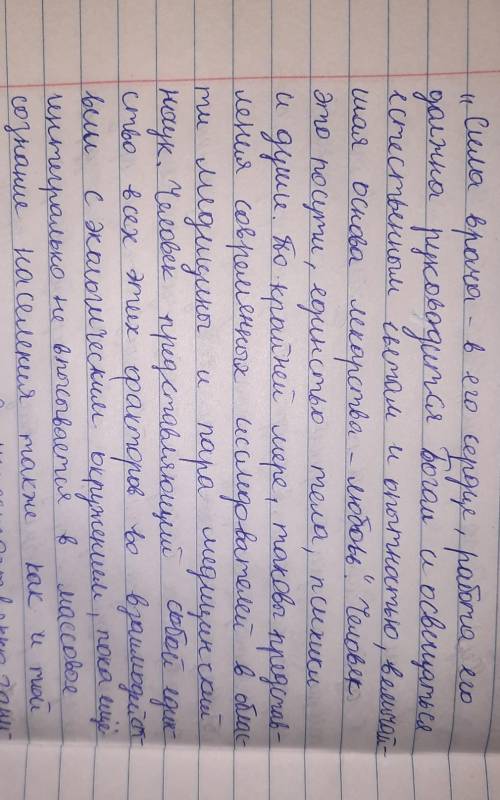 „Сила врача - в его сердце, работа его
должна руководится Богом и освещаться
естественным светом и опытностью, величай-
шая основа лекарства - любовь." Человек
это посути, единство тела, психики
и души. По крайней мере, таковы представ-
ления современных исследователей в облас-
ти медицины и пара медицинской
наук. Человек представляющий собой един-
ство всех этих факторов во взаимодейст-
вии с экологическим окружением, пока ещё
центрально не вписывается в массовое
сознание населения также как и той